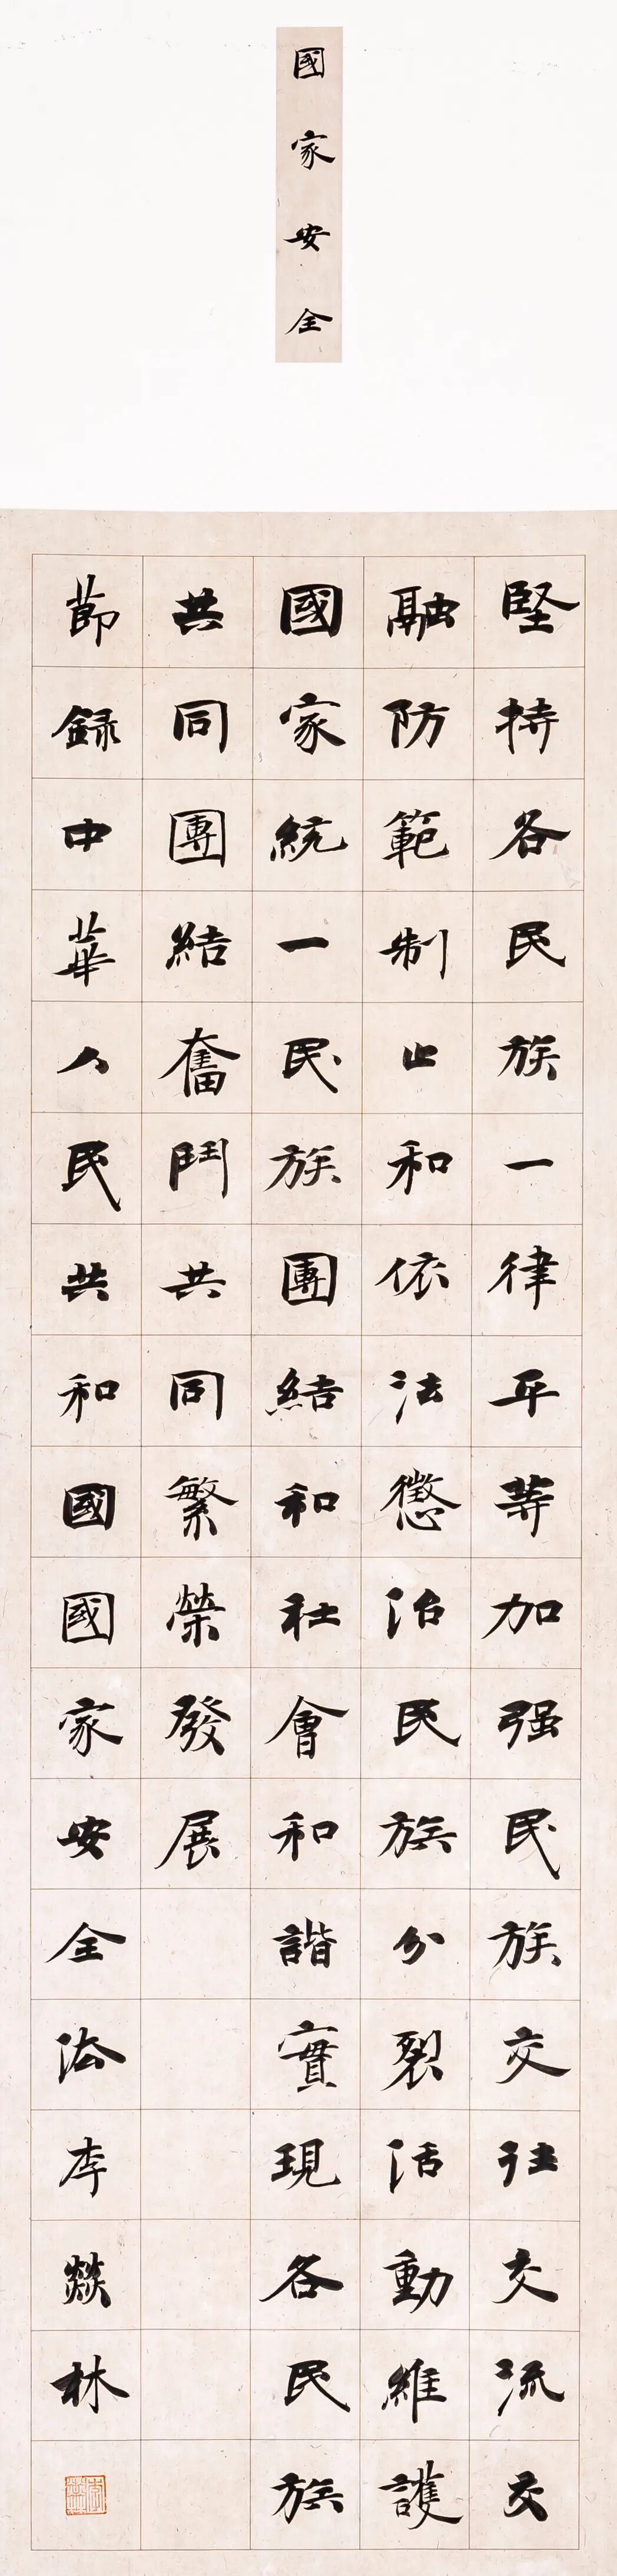 國家安全
堅持各民族一律平等加强民族交往交流交
融防範制止和依法懲治民族分裂活動維護
國家統一民族團結和社會和諧實現各民族
共同團結奮鬥共同繁榮發展
節録中華人民共和國國家安全法李燚林